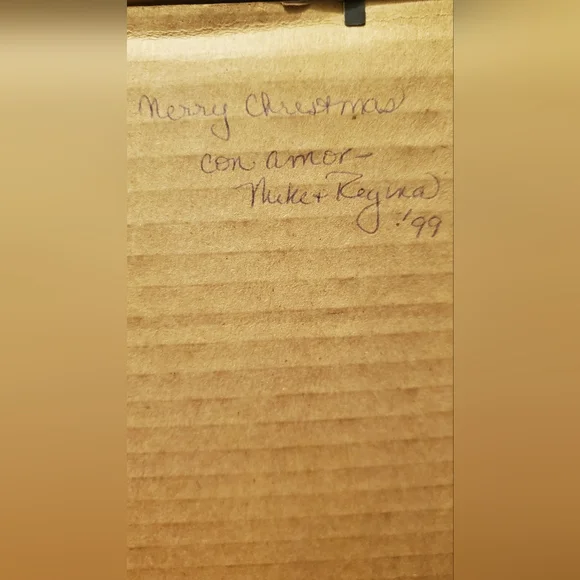 Merry Christmas
con amor-
Mike + Regina
'99